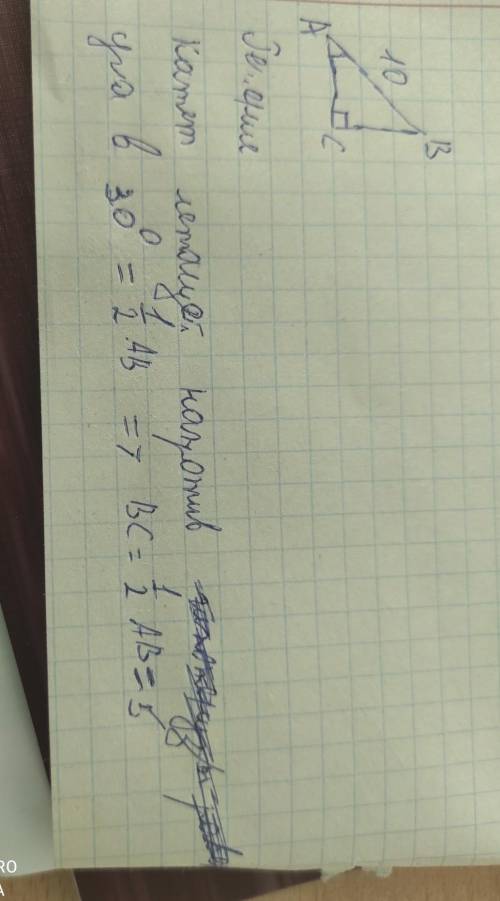 A
10
B
C
Решение
Катет лежащей напротив
угла в 30° = 1/2 AB => BC = 1/2 AB = 5